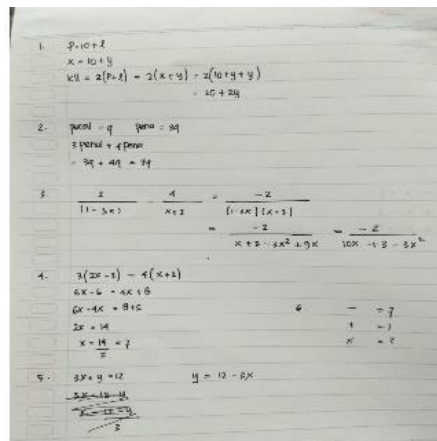 1. P = 10 + l
x = 10 + y
kll = 2(P+l) = 2(x+y) = 2(10+y+y)
= 20 + 2y
2. pensil = q pena = 3q
3 pensil + 4 pena
= 3q + 4q = 7q
3. 2/(1-3x) - 4/(x+3) = -2/((1-3x)(x+3))
= -2/(x+3-3x²+9x) = -2/(10x+3-3x²)
4. 3(2x-2) = 4(x+2)
6x-6 = 4x+8
6x-4x = 8+6
2x = 14
x = 14/2 = 7
6 - = 7
+ = 1
x = ?
5. 3x + y = 12 y = 12 - 3x
3x = 12 - y
x = 12 - y
3